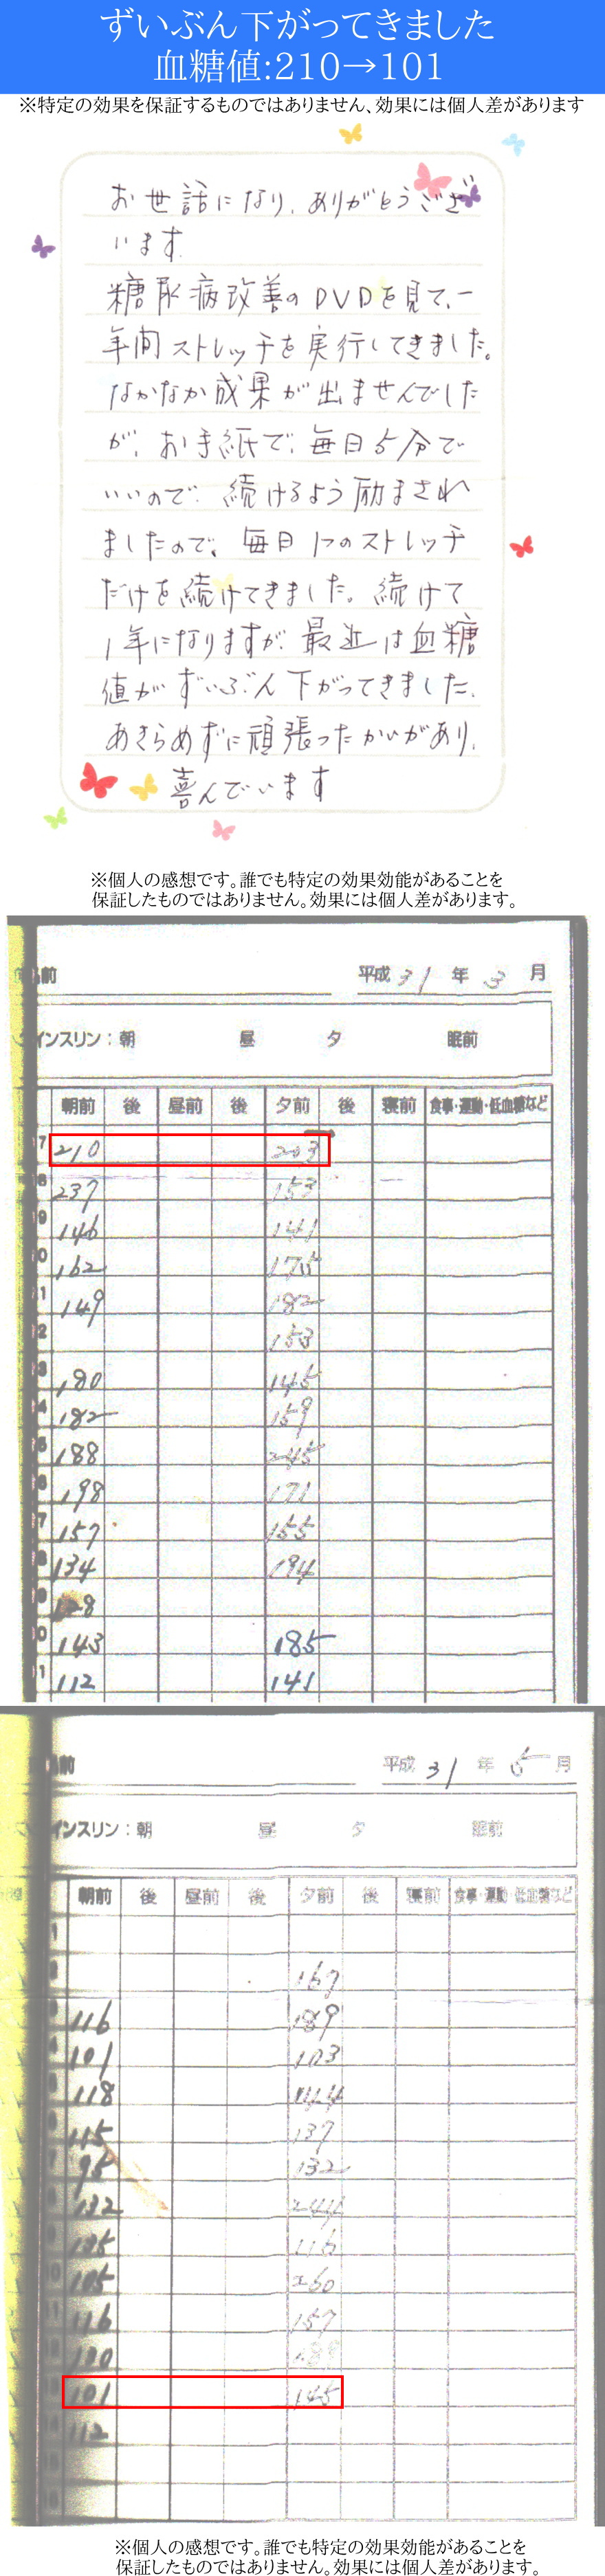 ずいぶん下がってきました
血糖値:210→101
※特定の効果を保証するものではありません、効果には個人差があります
お世話になり、ありがとうござ
います
糖尿病改善のDVDを見て、一
年間ストレッチを実行してきました。
なかなか成果が出ませんでした
が、お手紙で、毎日5分で
いいので、続けるよう励まされ
ましたので、毎日1つのストレッチ
だけを続けてきました。続けて
1年になりますが、最近は血糖
値がずいぶん下がってきました、
あきらめずに頑張ったかいがあり、
喜んでいます
※個人の感想です。誰でも特定の効果効能があることを
保証したものではありません。効果には個人差があります。
前 平成 31 年 3 月
インスリン：朝 昼 夕 眠前
朝前 後 昼前 後 夕前 後 寝前 食事・運動・低血糖など
7 210 203
8 237 153
9 146 141
0 162 175
1 149 182
2 153
3 180 145
4 182 159
5 188 245
6 198 171
7 157 155
8 134 194
9 128
0 143 185
1 112 141
前 平成 31 年 5 月
インスリン：朝 昼 夕 眠前
朝前 後 昼前 後 夕前 後 寝前 食事・運動・低血糖など
167
116 189
101 103
118 144
115 137
95 132
132 244
135 116
105 260
116 157
130
101 145
112
※個人の感想です。誰でも特定の効果効能があることを
保証したものではありません。効果には個人差があります。